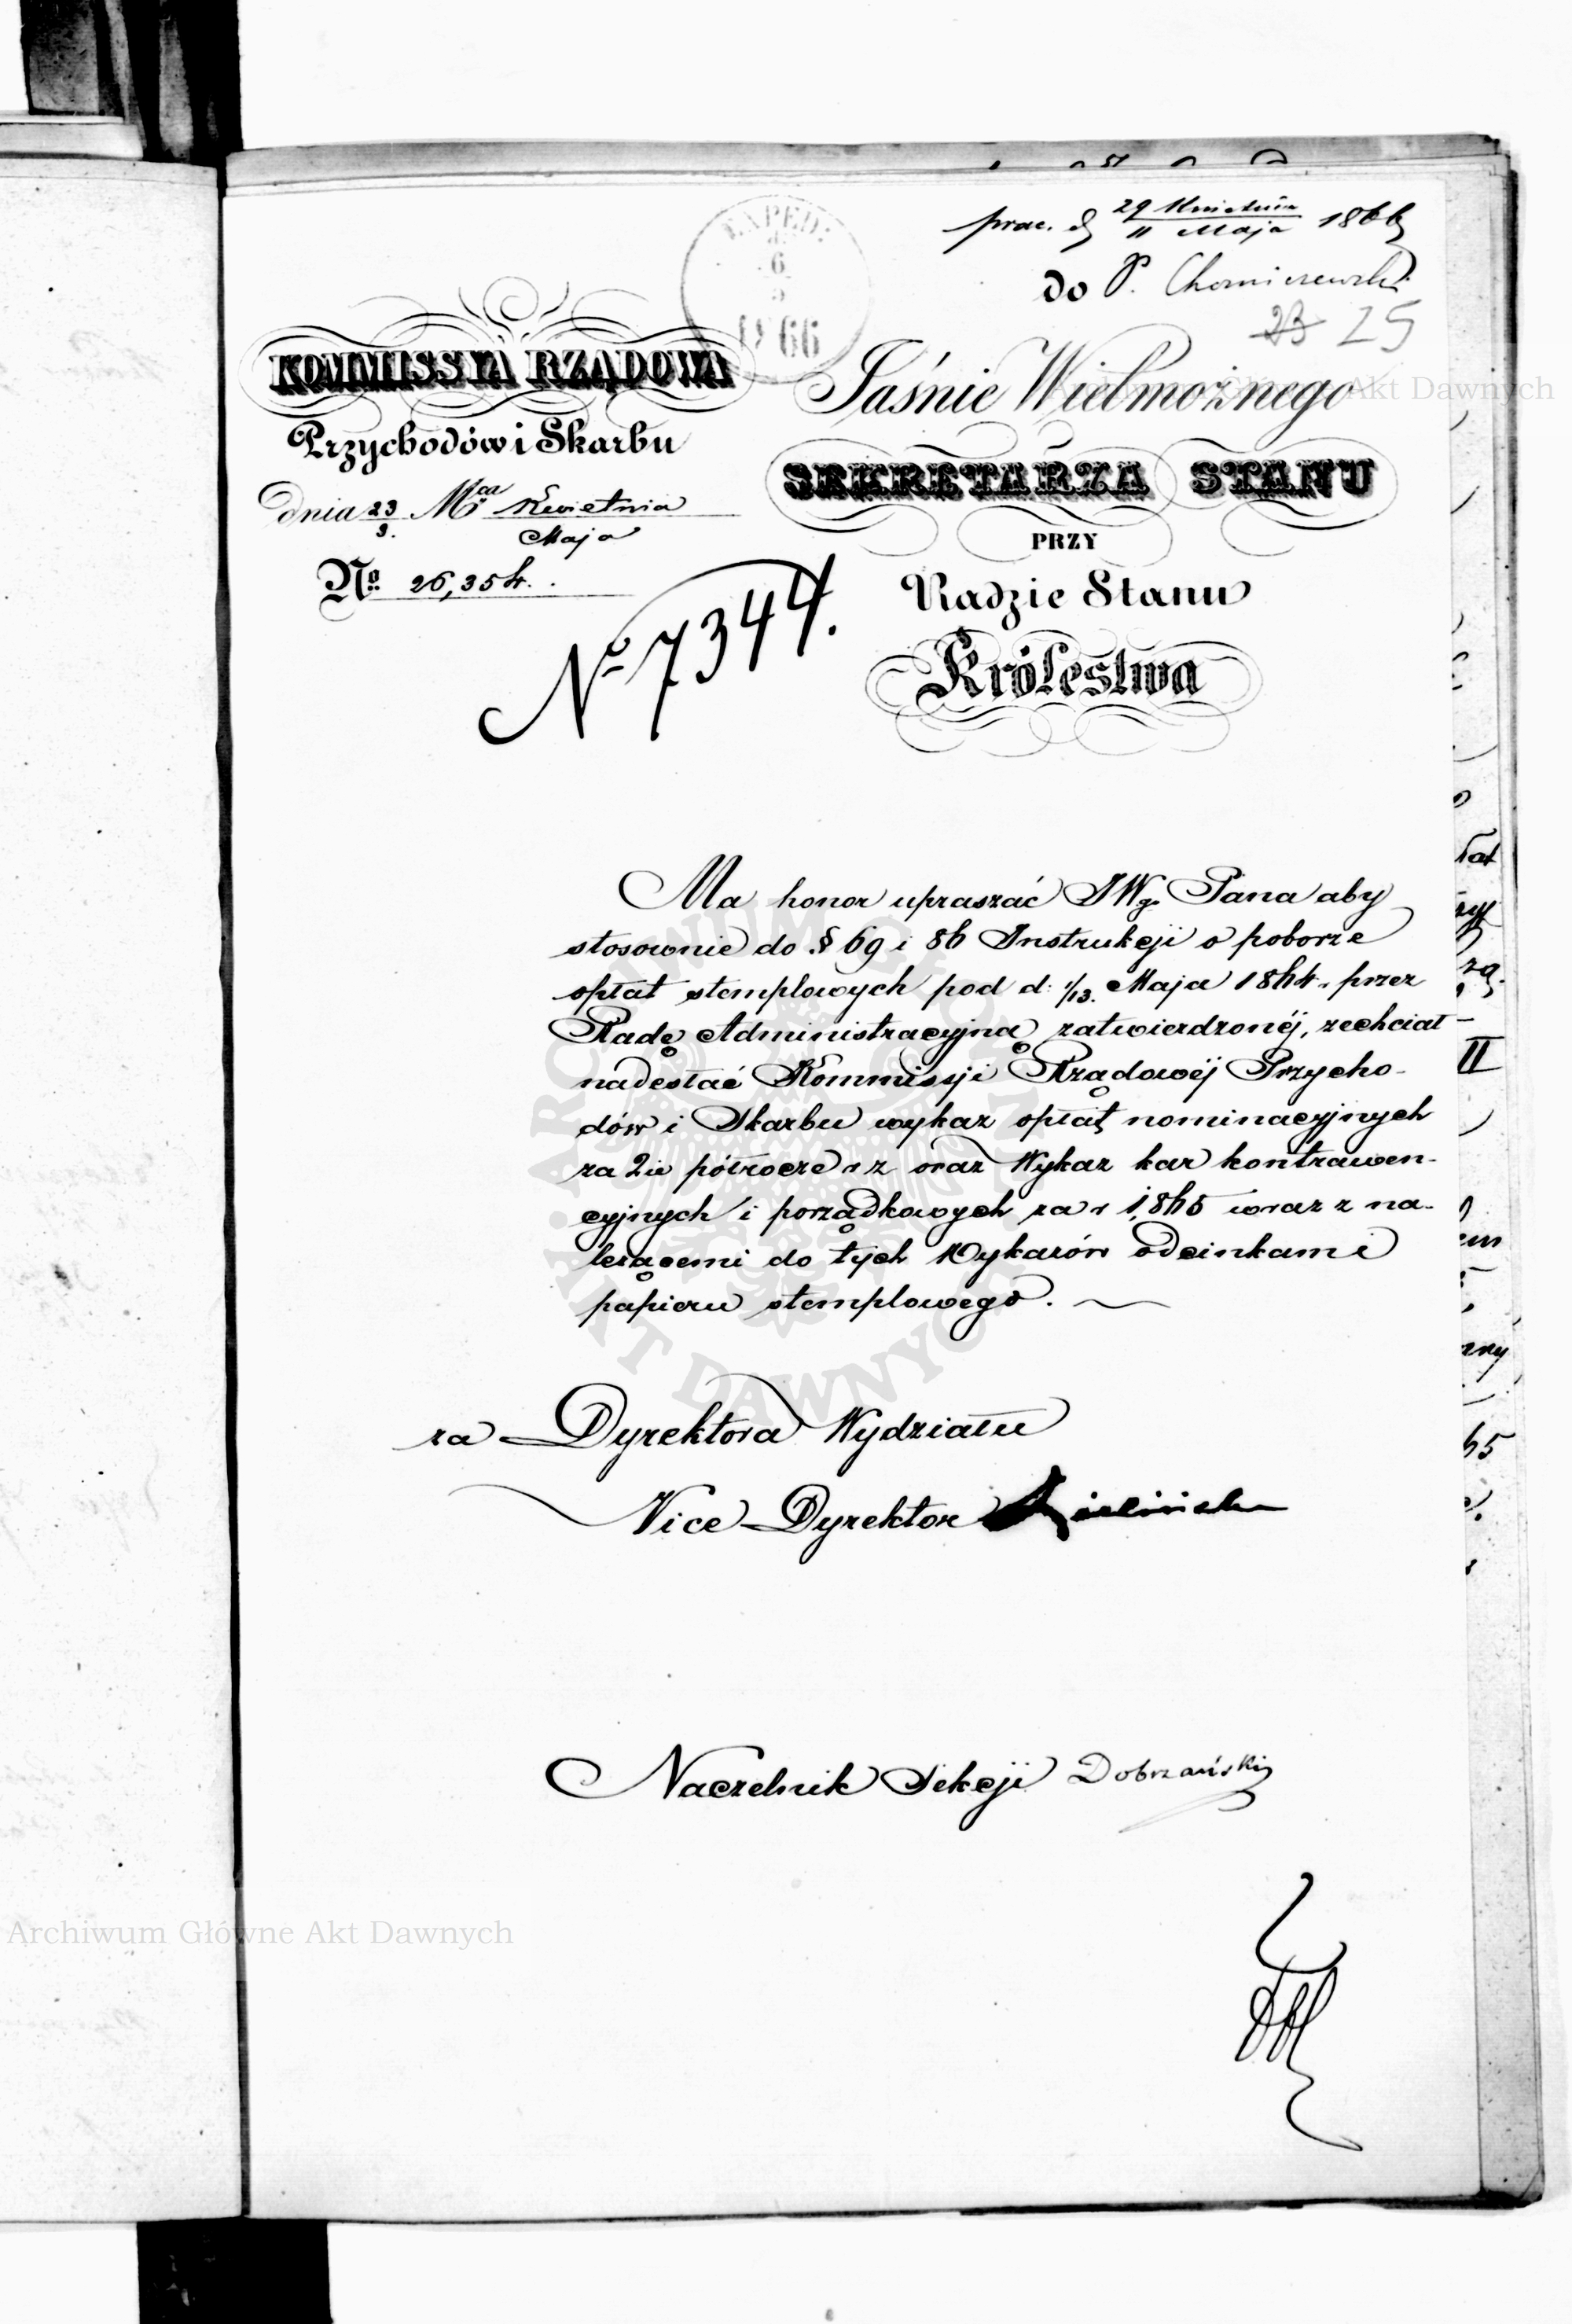 prac. d 29 Kwietnia 1866
11 Maja
do P.
23 25
EXPED:
6
5
1866
KOMMISSYA RZĄDOWA
Przychodów i Skarbu
dnia 23 Mca Kwietnia
3. Maja
No 26,354.
No 7344.
Jaśnie Wielmożnego
SEKRETARZA STANU
PRZY
Radzie Stanu
Królestwa
Ma honor upraszać JWgo Pana aby
stosownie do § 69 i 86 Instrukcji o poborze
opłat stemplowych pod d: 1/13. Maja 1864. przez
Radę Administracyjną zatwierdzonéj, zechciał
nadesłać Kommissji Rządowéj Przycho-
dów i Skarbu wykaz opłat nominacyjnych
za 2ie półrocze r z oraz Wykaz kar kontrawen-
cyjnych i porządkowych za r 1865 wraz z na-
leżącemi do tych Wykazów odcinkami
papieru stemplowego.
za Dyrektora Wydziału
Vice Dyrektor
Naczelnik Sekcji Dobrzański
ARCHIWUM GŁÓWNE AKT DAWNYCH
Archiwum Główne Akt Dawnych
Akt Dawnych